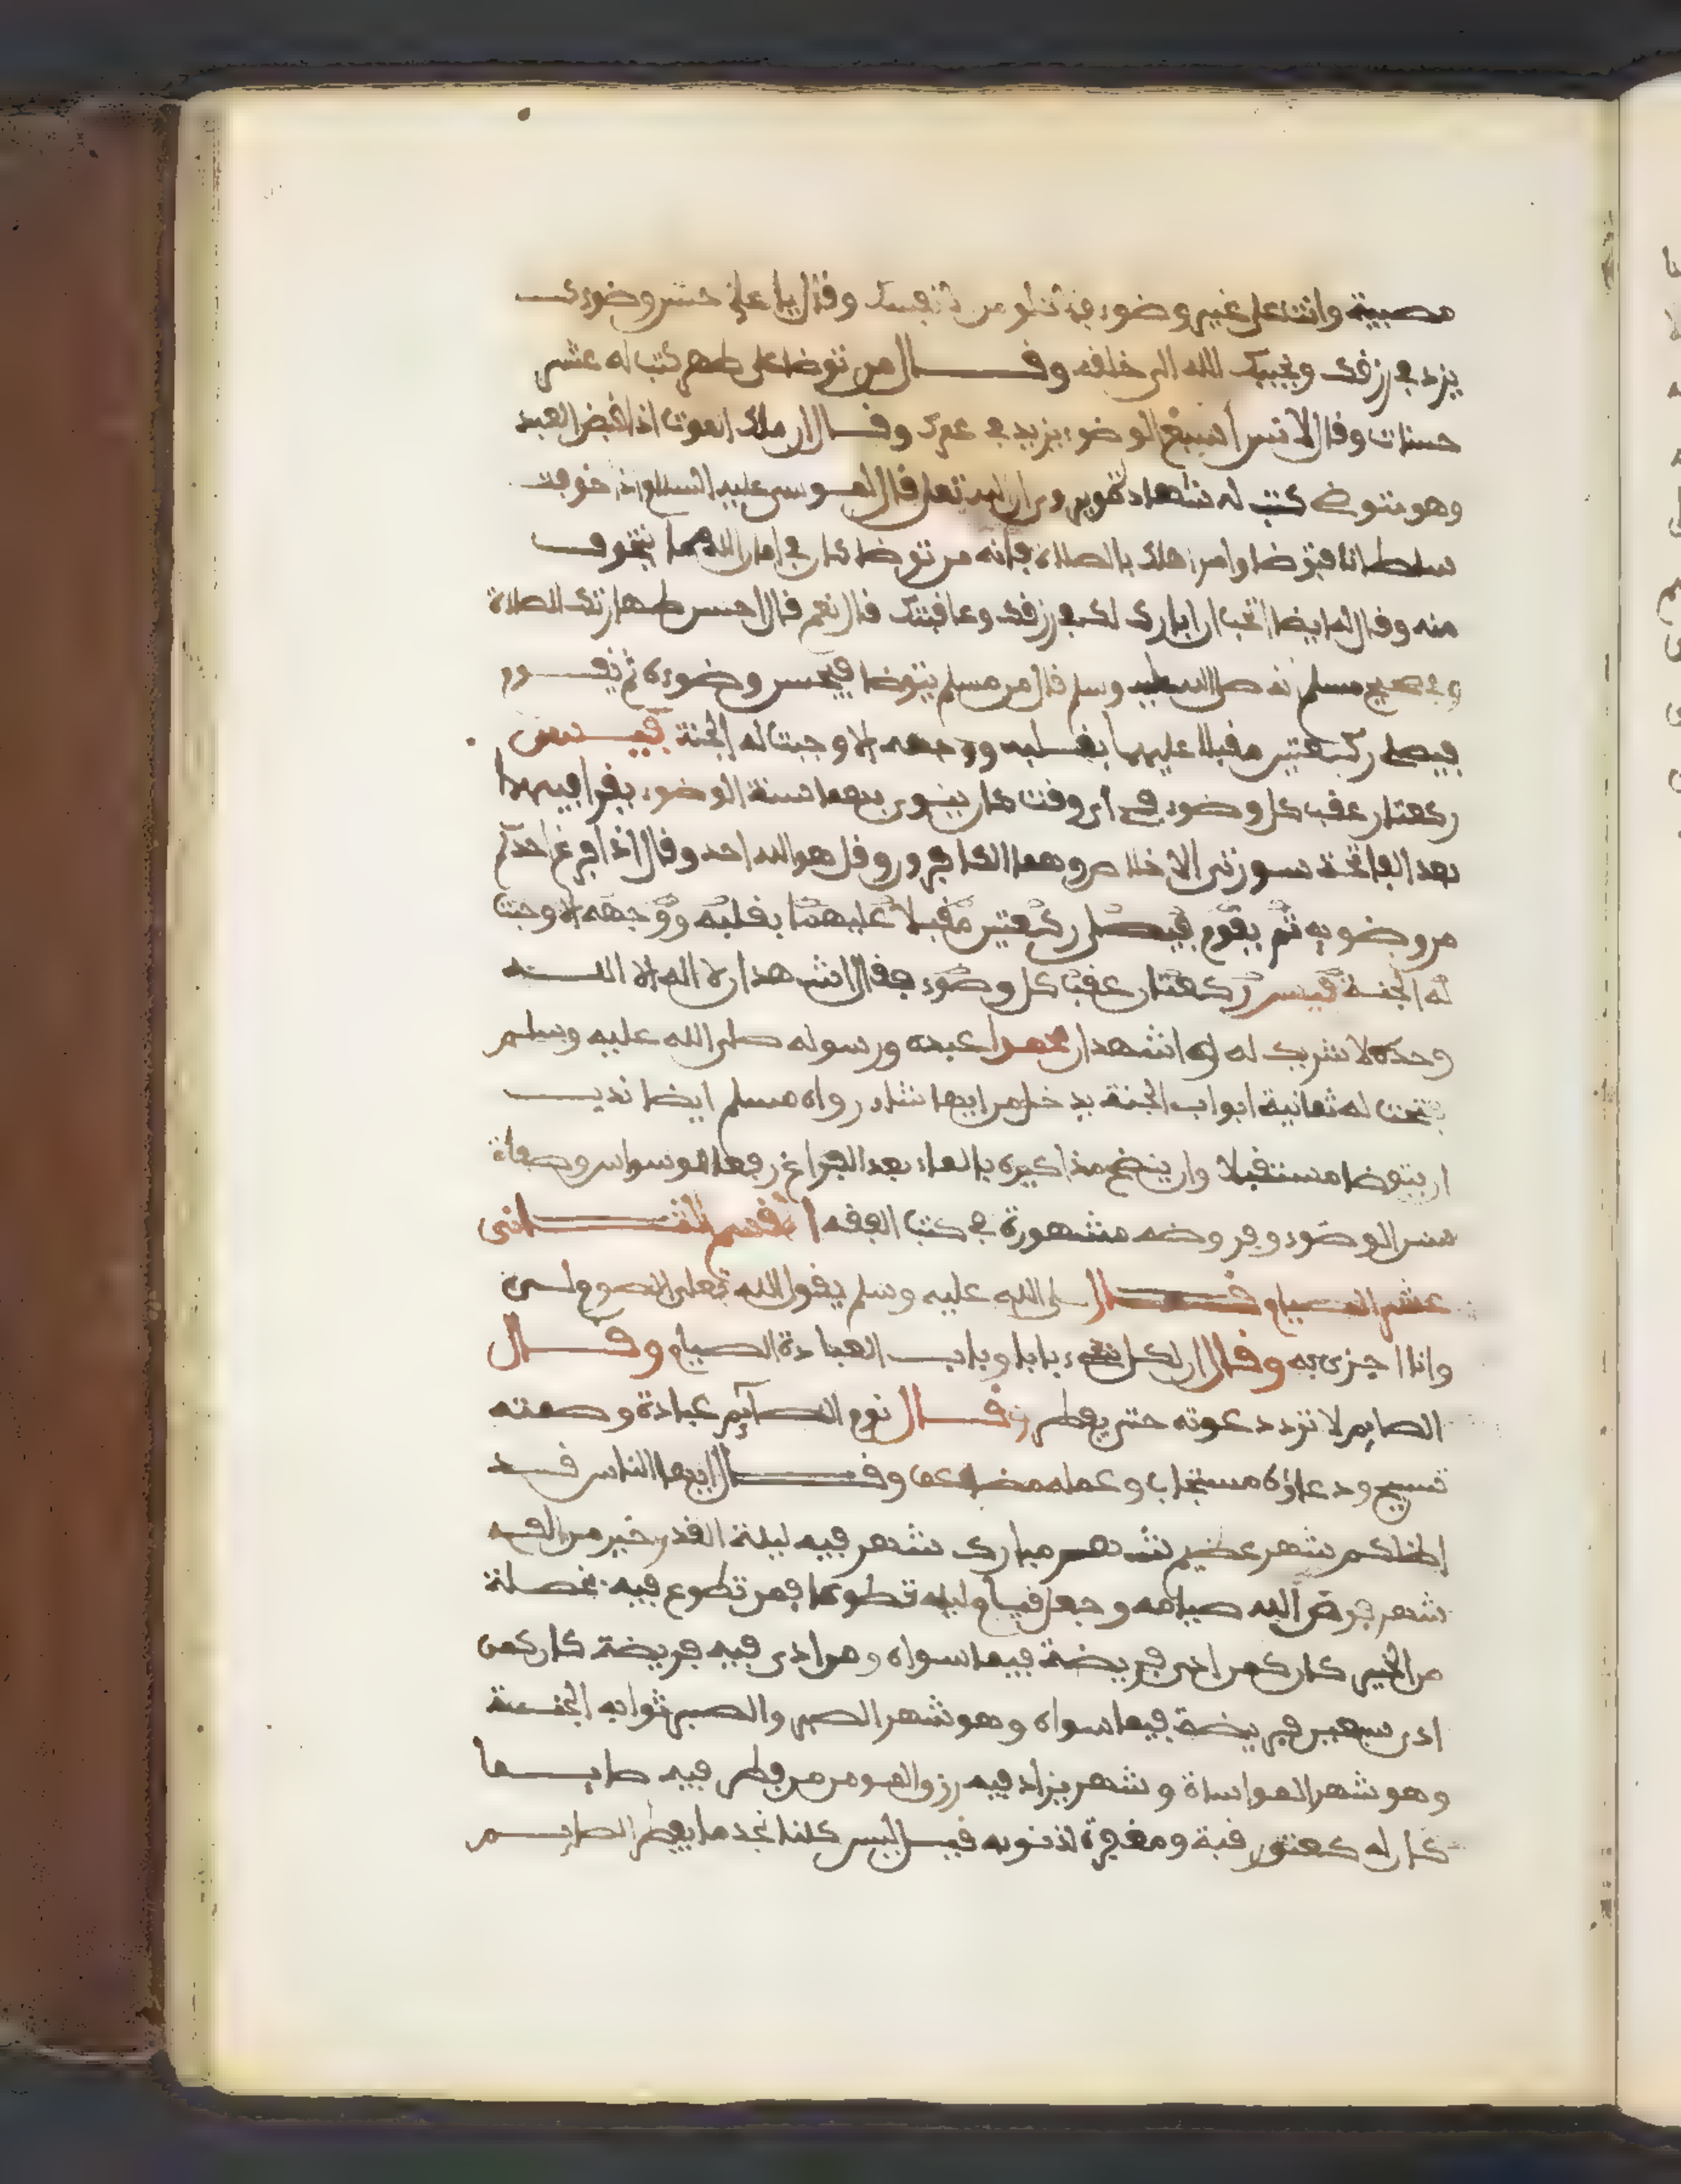 مصيبة وانت على غير وضوء فلا تلومن الا نفسك وقال يا علي حسن وضوءك
يزد في رزقك ويحببك الله الى خلقه وقال من توضا على طهر كتب له عشر
حسنات وقال لانس اسبغ الوضوء يزيد في عمرك وقال ان ملك الموت اذا قبض العبد
وهو متوضئ كتب له شهادة وروي ان الله تعلى قال لموسى عليه السلام اذا خوفت
سلطانا فتوضا وامر اهلك بالصلاة فانه من توضا كان في امان الله مما يتخوف
منه وقال له ايضا اتحب ان ابارك لك في رزقك وعافيتك قال نعم قال احسن طهارتك للصلاة
وفي صحيح مسلم انه صلى الله عليه وسلم قال من مسلم يتوضا فيحسن وضوءه ثم يقوم
فيصلي ركعتين مقبلا عليهما بقلبه ووجهه الا وجبت له الجنة فيسن
ركعتان عقب كل وضوء في اي وقت كان ينوي بهما سنة الوضوء يقرا فيهما
بعد الفاتحة سورتي الاخلاص وهما الكافرون وقل هو الله احد وقال اذا فرغ احدكم
من وضويه ثم يقوم فيصلي ركعتين مقبلا عليهما بقلبه ووجهه الا وجبت
له الجنة فيسن ركعتان عقب كل وضوء فقال اشهد ان لا اله الا الله
وحده لا شريك له واشهد ان محمدا عبده ورسوله صلى الله عليه وسلم
فتحت له ثمانية ابواب الجنة يدخل من ايها شاء رواه مسلم ايضا نديب
ان يتوضا مستقبلا وان ينضح مذاكيره بالماء بعد الفراغ رفعا للوسواس وصفاة
سنن الوضوء وفروضه مشهورة في كتب الفقه القسم الثاني
عشر الصيام قال صلى الله عليه وسلم يقول الله تعلى الصوم لي
وانا اجزي به وقال ان لكل شيء بابا وباب العبادة الصيام وقال
الصايم لا ترد دعوته حتى يفطر وقال نوم الصايم عبادة وصمته
تسبيح ودعاؤه مستجاب وعمله مضاعف وقال ايها الناس قد
اظلكم شهر عظيم شهر مبارك شهر فيه ليلة القدر خير من الف
شهر فرض الله صيامه وجعل قيام ليله تطوعا فمن تطوع فيه بخصلة
من الخير كان كمن ادى فريضة فيما سواه ومن ادى فيه فريضة كان كمن
ادى سبعين فريضة فيما سواه وهو شهر الصبر والصبر ثوابه الجنة
وهو شهر المواساة وشهر يزاد فيه رزق المومن من فطر فيه صايما
كان له كعتق رقبة ومغفرة لذنوبه قيل ليس كلنا نجد ما يفطر الصايم